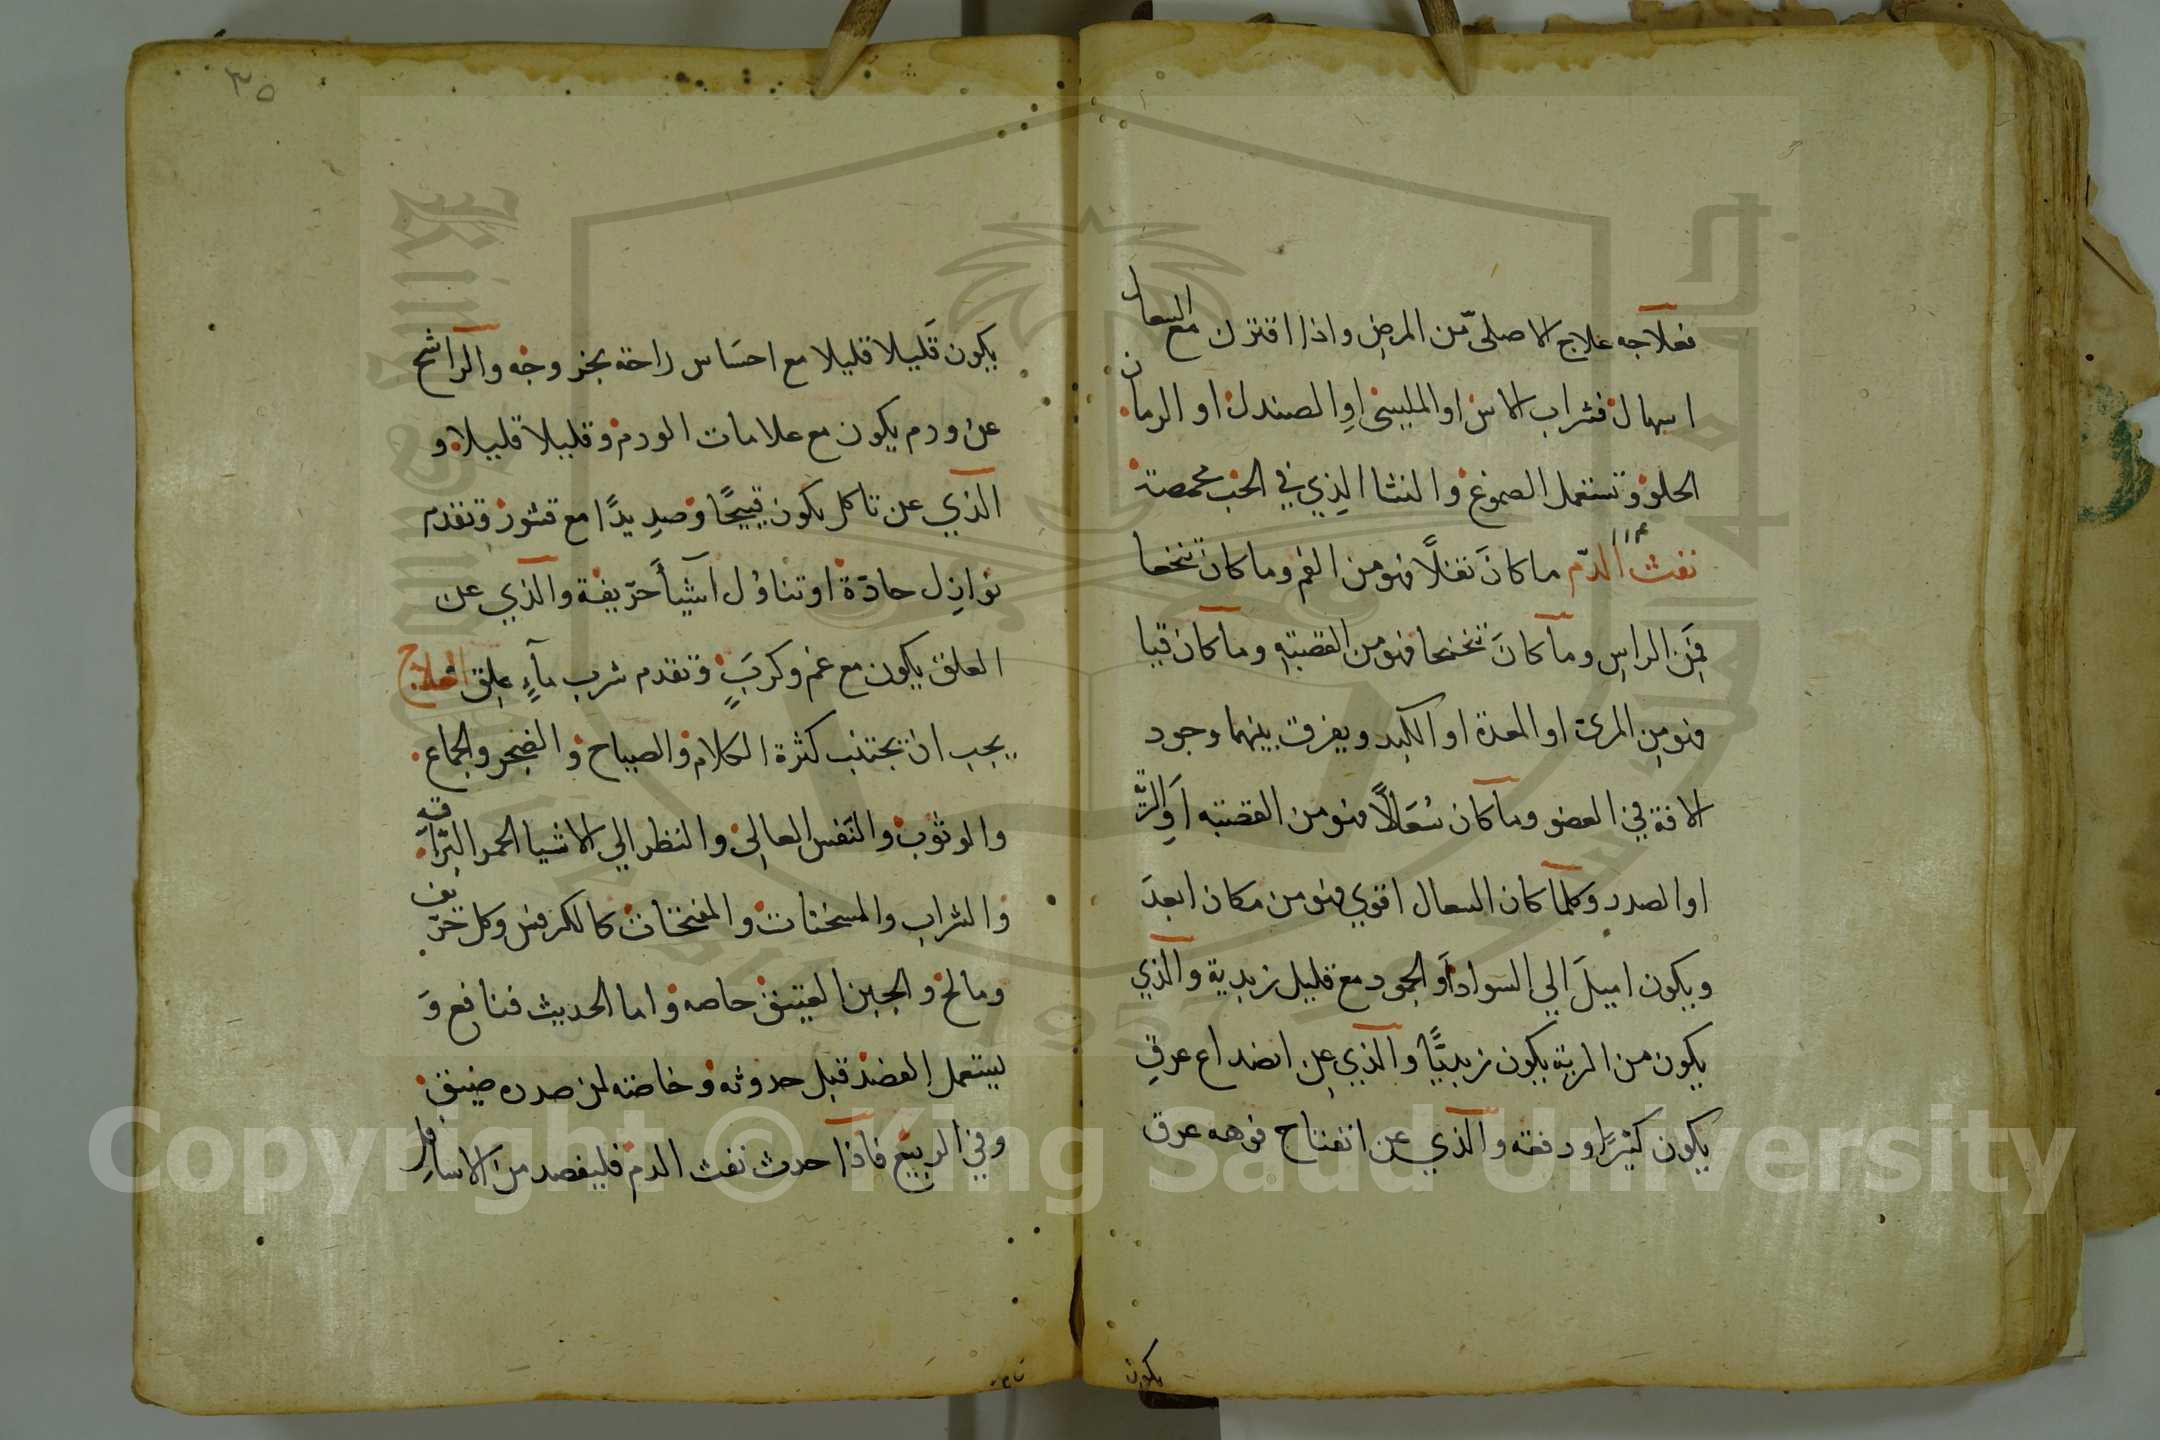 فعلاجه علاج الاصلي من المرض واذا اقترن مع السعال
اسهال فشراب الاس او المليسى او الصندل او الرمان
الحلو وتستعمل الصموغ والنشا الذي في الحب محمصة
نفث الدم ما كانَ تفلًا فهو من الفم وما كان تنخعا
فمَن الراس وما كانَ تنخنحا فهو من القصبه وما كان قيا
فهو من المرئ او المعدة او الكبد ويفرق بينهما وجود
الافة في العضو وما كان سُعَالًا فهو من القصبه اَو الرئة
او الصدر وكلما كان السعال اقوي فهو من مكان ابعدَ
ويكون اميلَ الي السواد اَو الجمود مع قليل زبدية والذي
يكون من الرية يكون زبديًّا والذي عن انصداع عرق
يكون كثيرًا ودفعه والذي عن انفتاح فوهه عرق
يكون
٣٥
يكون قَليلا قليلا مع احسَاس راحة بخروجه والراشح
عن ورم يكون مع علامات الورم وقليلا قليلا و
الذي عن تاكل يكون قيحًا وصديدًا مع قشور وتقدم
نوازل حادّة او تناوُل اشيأ حرّيفة والذي عن
العلق يكون مع غم وكربٍ وتقدم شرب مآءٍ علق العلاج
يجب ان تجتنب كثرة الكلام والصياح والضجر والجماع
والوثوب والنَفس العالي والنظر الي الاشيا الحمر البرّاقه
والشراب والمسخنات والمفتحات كالكرفس وكل حرّيف
ومالح والجبن العتيق خاصه واما الحديث فنافع وَ
ليستعمل الفصد قبل حدوثه وخاصة لمن صدره ضيق
وفي الربيع فاذا حدث نفث الدم فليفصد من الاسافل
Copyright © King Saud University
King Saud University
جامعة الملك سعود
1957